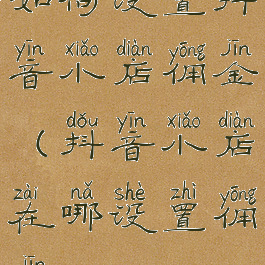 如何设置抖
yīn xiǎo diàn yōng jīn
音小店佣金
dǒu yīn xiǎo diàn
（抖音小店
zài nǎ shè zhì yōng
在哪设置佣
jīn